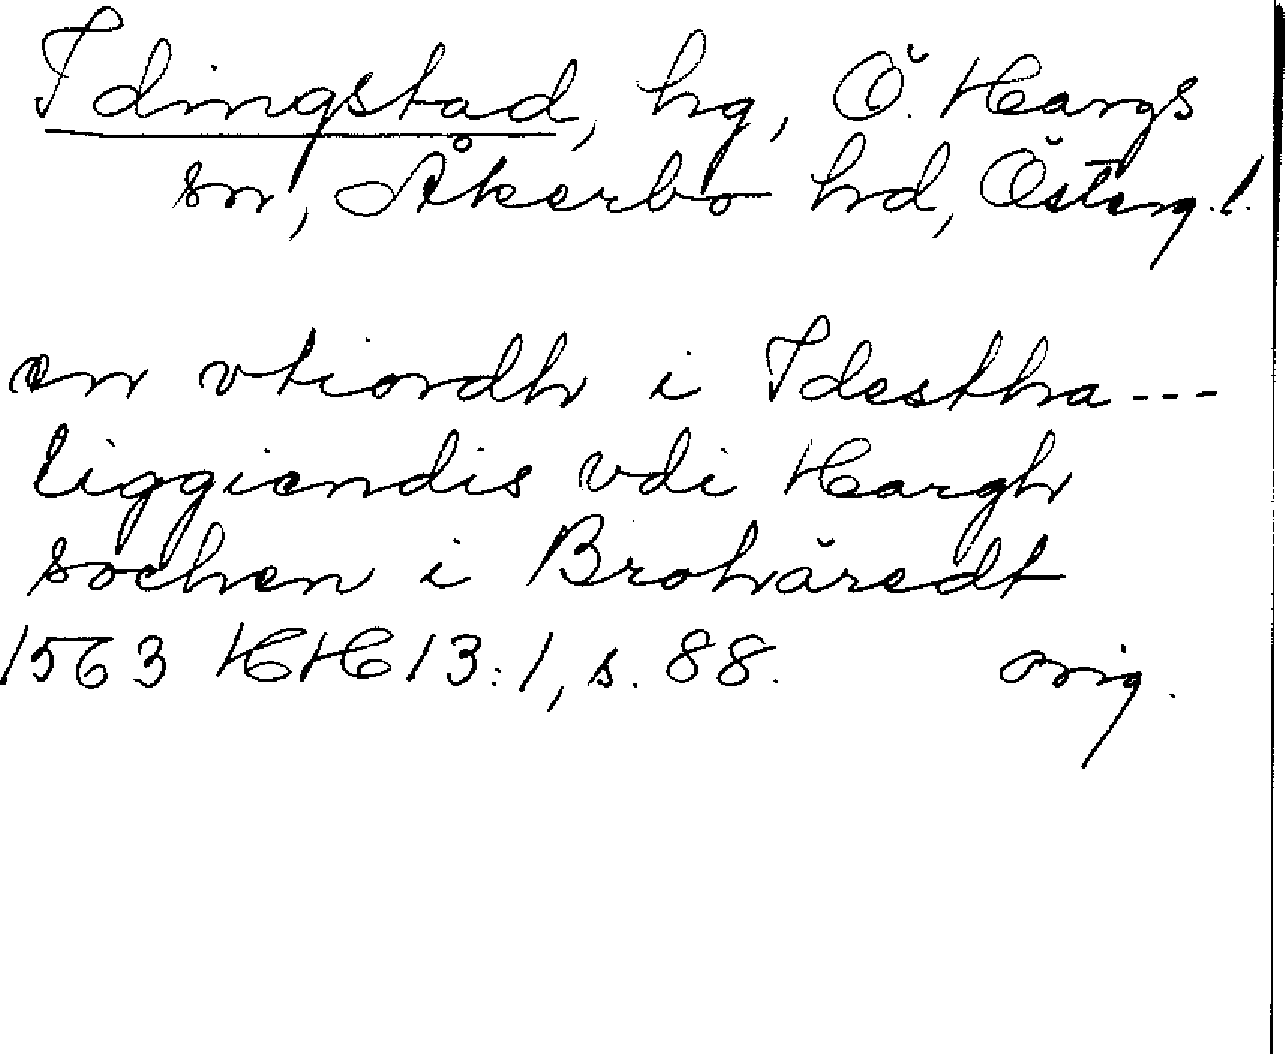 Idingstad, hg, Ö. Hargs
sn, Åkerbo hd, Österg. l.
en vtiordh i Idestha ---
liggiendis vdi Hargh
sochen i Brohäredt
1563 HH 13:1, s. 88. orig.